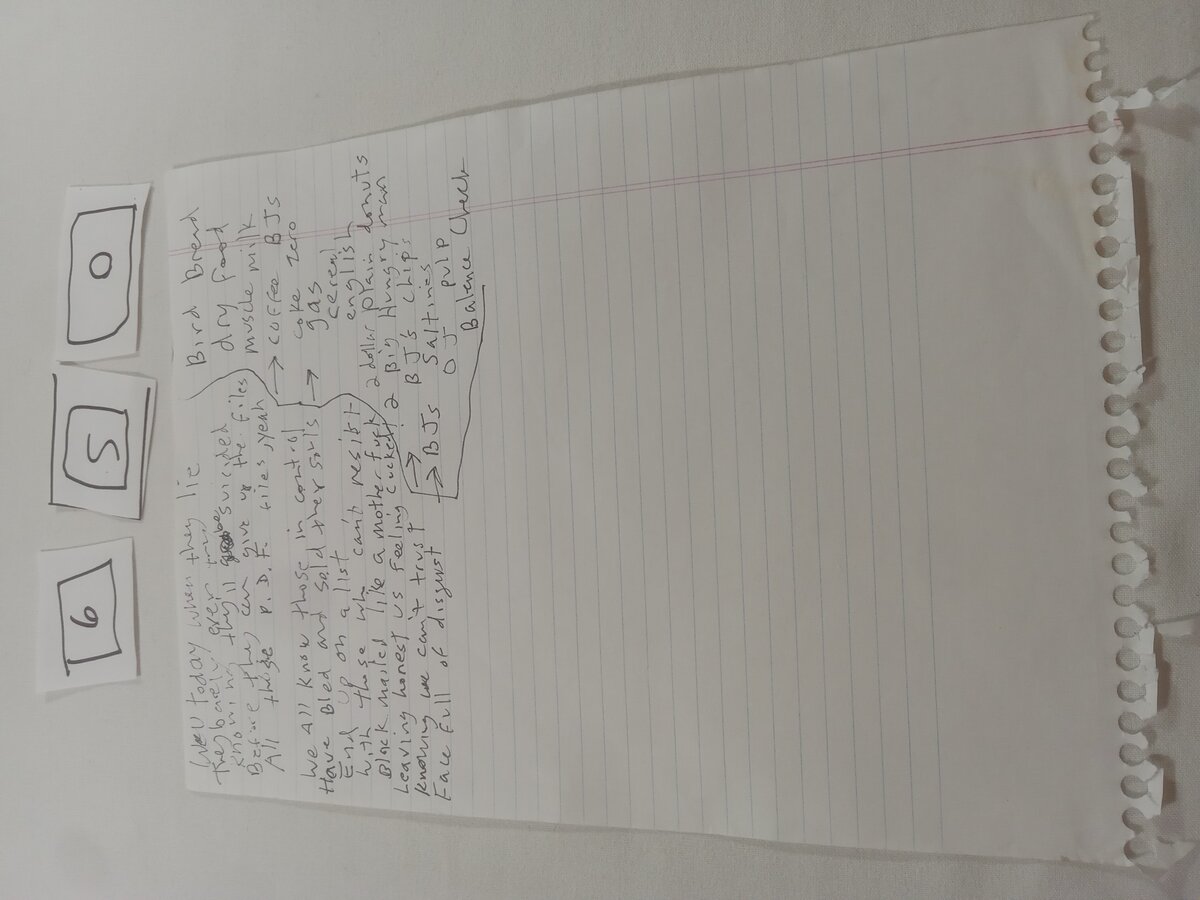 6 5 0
Well today when they lie
they barely even try
Knowing they'll be suicided
Before they can give up the files
All those P.D.F. files, yeah
We All know those in control
Have Bled and sold their souls
End up on a list
with those who can't resist
Black mailed like a mother fuck
Leaving honest us feeling cucked
Knowing we can't trust
Face full of disgust
Bird Bread
dry food
muscle milk
→ coffee BJs
coke zero
→ gas
cereal
english
2 dollar plain donuts
2 Big Hungry man
→ BJs chips
→ BJs Saltines
OJ pulp
Balance Check